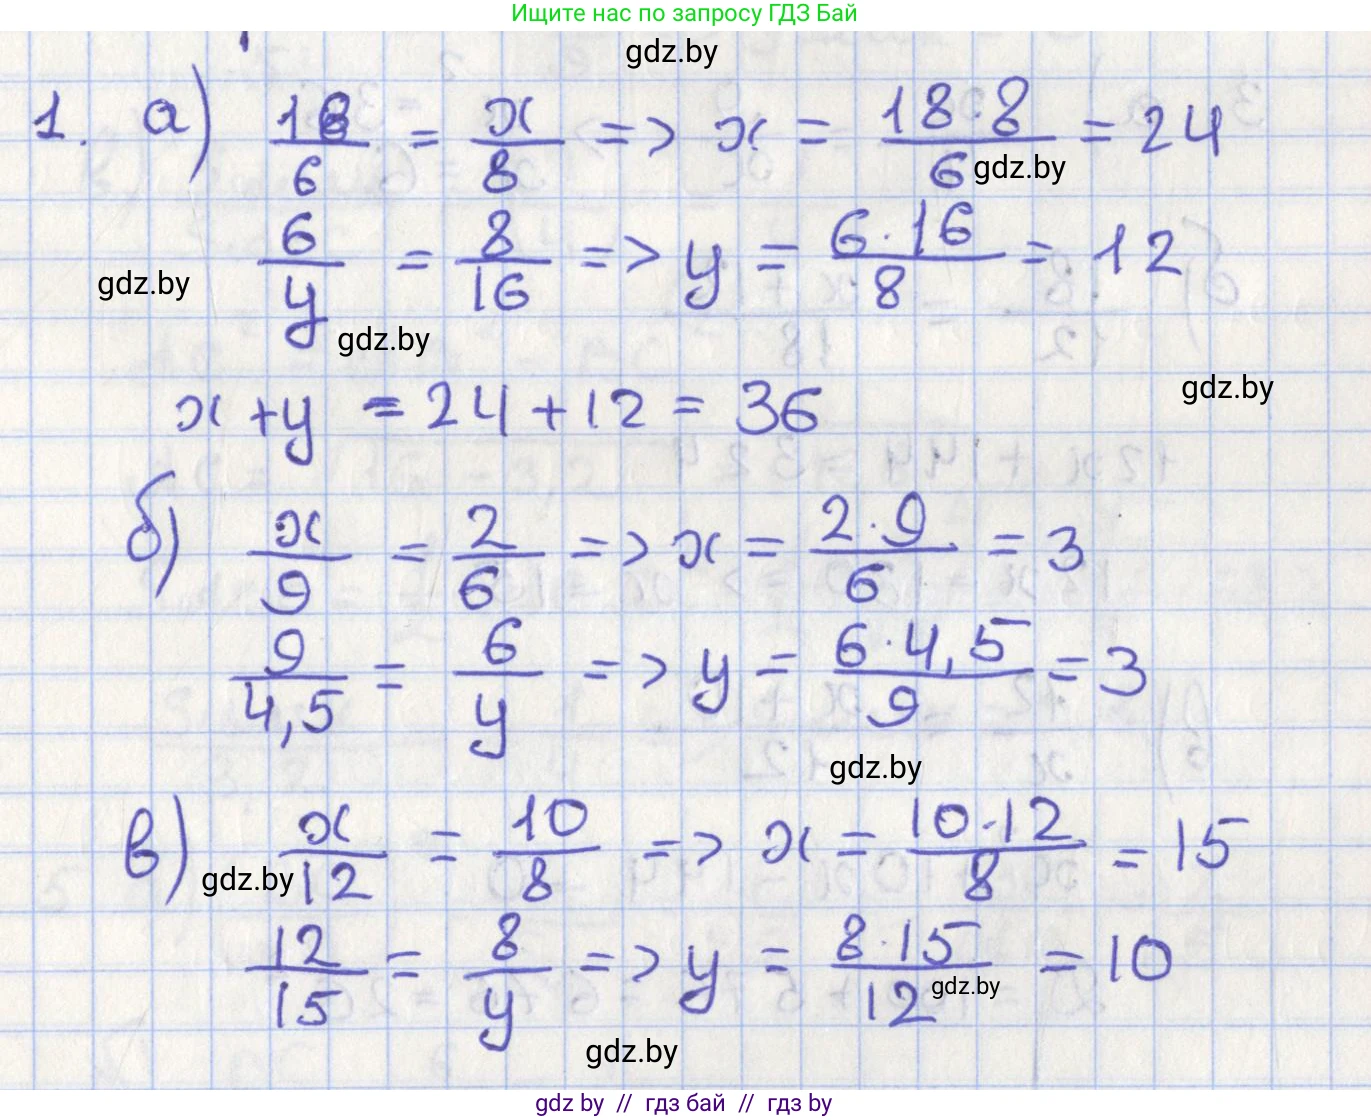 Ищите нас по запросу ГДЗ Бай
gdz.by
1. а) 18/6 = x/8 => x = 18·8/6 = 24
gdz.by
6/y = 8/16 => y = 6·16/8 = 12
gdz.by
gdz.by
gdz.by
x + y = 24 + 12 = 36
б) x/9 = 2/6 => x = 2·9/6 = 3
9/4,5 = 6/y => y = 6·4,5/9 = 3
gdz.by
в) x/12 = 10/8 => x = 10·12/8 = 15
gdz.by
12/15 = 8/y => y = 8·15/12 = 10
gdz.by
gdz.by
gdz.by // гдз бай // гдз by